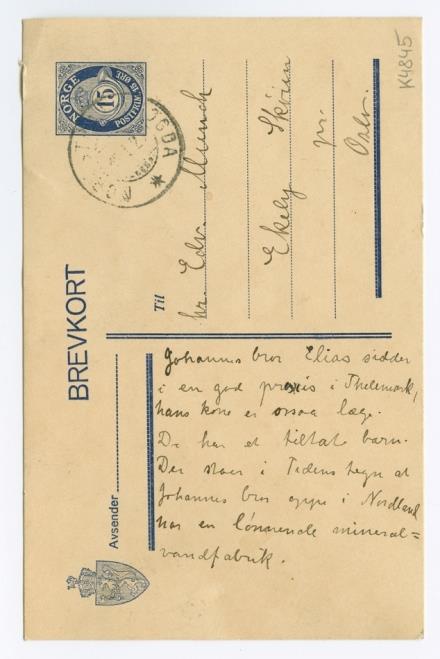 BREVKORT
NORGE
15
POSTFRIM. 15 ØRE
OGDA
Til
hr. Edv. Munch
Ekely Skøien
pr.
Oslo.
K4845
Avsender
Johannes bror Elias sidder
i en god praxis i Thelemark,
hans kone er ogsaa læge.
De har et tiltat barn.
Der staar i Tidens tegn at
Johannes bror oppe i Nordland
har en lønnende mineral=
vandfabrik.